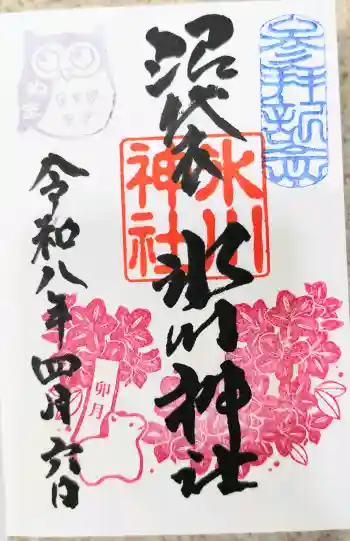 参拝記念
沼袋
氷川神社
氷川
神社
令和八年四月六日
卯月